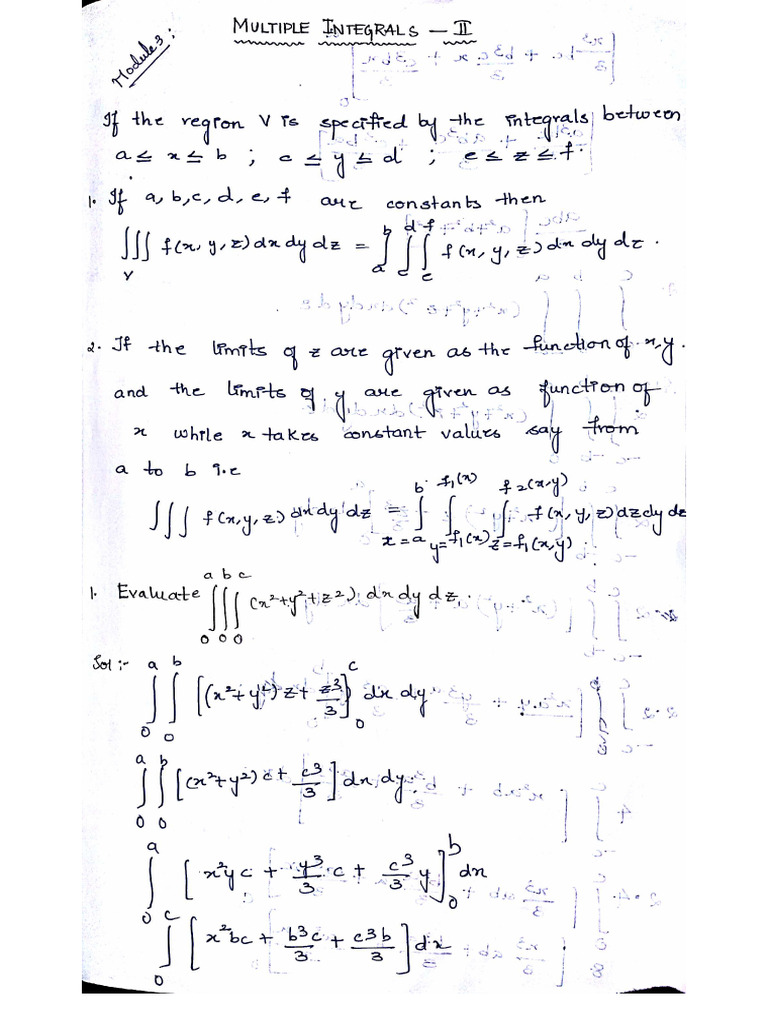 Module 3:
MULTIPLE INTEGRALS – II
If the region V is specified by the integrals between
a ≤ x ≤ b ; c ≤ y ≤ d ; e ≤ z ≤ f.
1. If a, b, c, d, e, f are constants then
∭_V f(x, y, z) dx dy dz = ∫_a^b ∫_c^d ∫_e^f f(x, y, z) dx dy dz.
2. If the limits of z are given as the function of x, y.
and the limits of y are given as function of
x while x takes constant values say from
a to b i.e
∭ f(x, y, z) dx dy dz = ∫_{x=a}^{b} ∫_{y=f₁(x)}^{f₁(x)} ∫_{z=f₁(x,y)}^{f₂(x,y)} f(x, y, z) dz dy dz
1. Evaluate ∫_0^a ∫_0^b ∫_0^c (x²+y²+z²) dx dy dz.
Sol :- ∫_0^a ∫_0^b [(x²+y²)z + z³/3]_0^c dx dy
∫_0^a ∫_0^b [(x²+y²)c + c³/3] dx dy.
∫_0^a [x²yc + y³/3 c + c³/3 y]_0^b dx
∫_0^c [x²bc + b³c/3 + c³b/3] dx